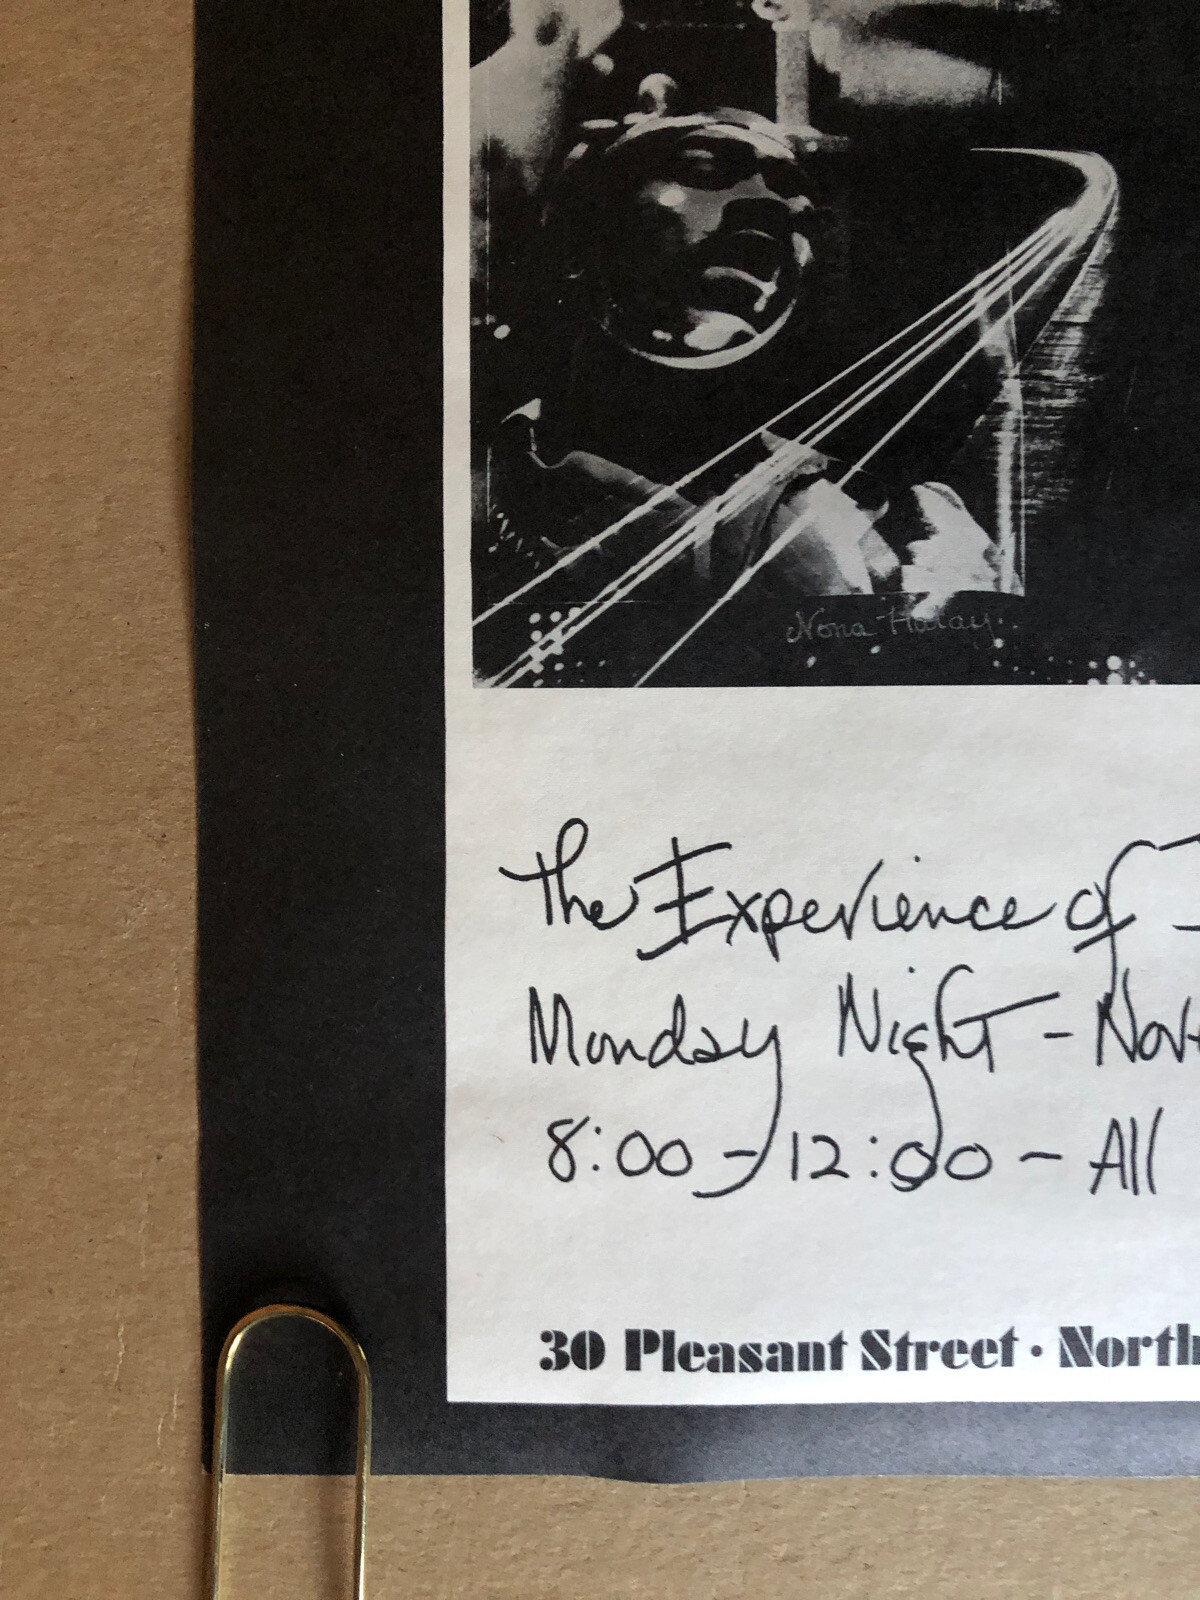 Nona Hatay
The Experience of
Monday Night - Nov
8:00 - 12:00 - All
30 Pleasant Street · North